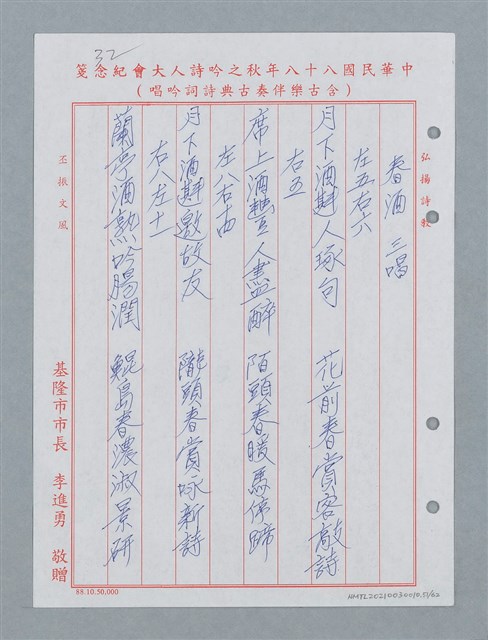 32
中華民國八十八年秋之吟詩人大會紀念箋
（含古樂伴奏古典詩詞吟唱）
弘揚詩教
春酒 三唱
左五右六
月下酒斟人琢句 花前春賞客敲詩
右五
席上酒豐人盡醉 陌頭春暖馬停蹄
左八右內
月下酒斟邀故友 隴頭春賞咏新詩
右八左十一
蘭亭酒熟吟腸潤 鯤島春濃淑景研
丕振文風
基隆市市長 李進勇 敬贈
88.10.50,000
HMTL20210030010.51/62